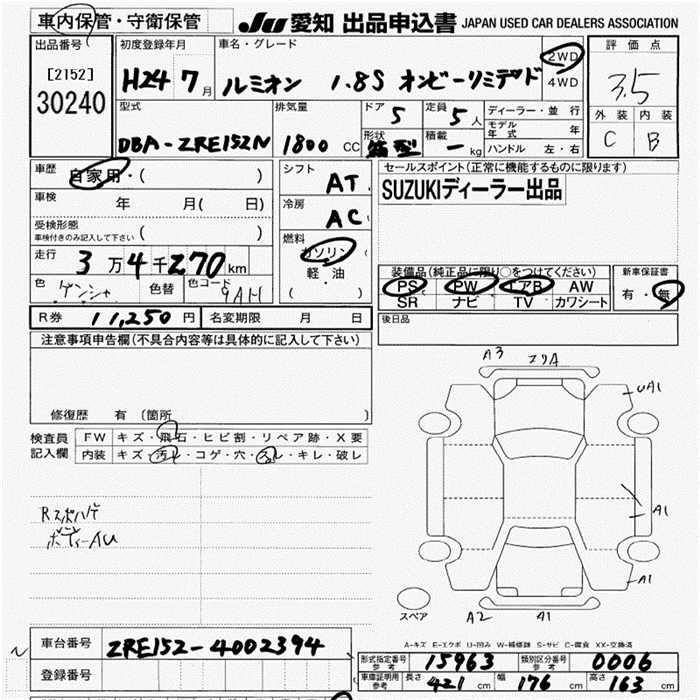 車内保管・守衛保管
JU 愛知 出品申込書 JAPAN USED CAR DEALERS ASSOCIATION
出品番号
[2152]
30240
初度登録年月
H24年7月
車名・グレード
ルミオン 1.8S オンビーリミテッド
2WD
4WD
評価点
3.5
外装 内装
C B
型式
DBA-ZRE152N
排気量
1800 CC
ドア 5
定員 5人
形状 箱型
積載 - kg
ディーラー・並行
モデル年式 年
ハンドル 左・右
車歴
自家用・( )
車検 年 月( 日)
受検形態
車検付きのみ記入して下さい ( )
走行
3万4千270km
色 ゲンシャ 色替 色コード 9AH
シフト
AT
冷房
AC
燃料
ガソリン
軽・油
( )
セールスポイント(正常に機能するものに限ります)
SUZUKIディーラー出品
装備品(純正品に限り○をつけてください)
PS PW エアB AW
SR ナビ TV カワシート
新車保証書
有・無
R券 11,250円 名変期限 月 日
後日品
注意事項申告欄(不具合内容等は具体的に記入して下さい)
修復歴 有 〔箇所 〕
検査員記入欄
FW キズ・飛石・ヒビ割・リペア跡・X要
内装 キズ・汚レ・コゲ・穴・スレ・キレ・破レ
Rスポハゲ
ボディーAU
A3 スリA
UA1
A1
A1
A2 A1
スペア
A-キズ E-エクボ U-凹み W-補修跡 S-サビ C-腐食 XX-交換済
車台番号 ZRE152-4002394
登録番号
型式指定番号 参考 15963 類別区分番号 参考 0006
車庫証明用 参考 長さ 421 cm 幅 176 cm 高さ 163 cm